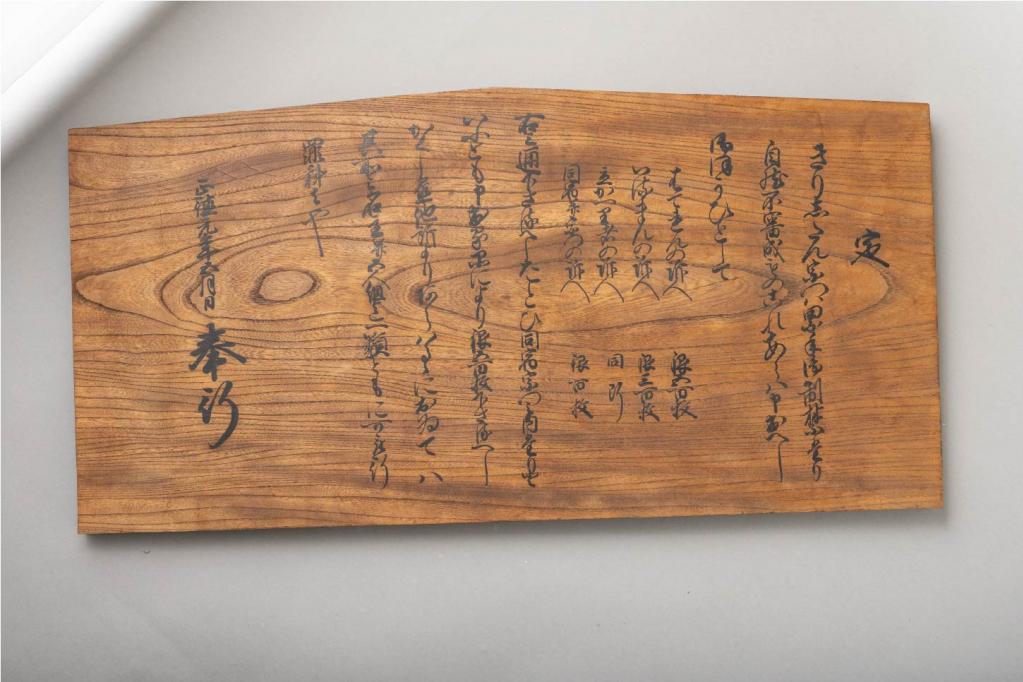 定
きりしたん宗門ハ累年御制禁たり
自然不審成ものこれあらハ申出へし
御ほうひとして
はてれんの訴人　銀五百枚
いるまんの訴人　銀三百枚
立かへり者の訴人　同断
同宿并宗門の訴人　銀百枚
右之通下さるへしたとひ同宿宗門之内たりと
いふとも申出る品により銀五百枚下さるへし
かくし置他所よりあらハるゝにおゐてハ
其所之名主并五人組迄一類ともに可被行
罪科者也
正徳元年五月日
奉行